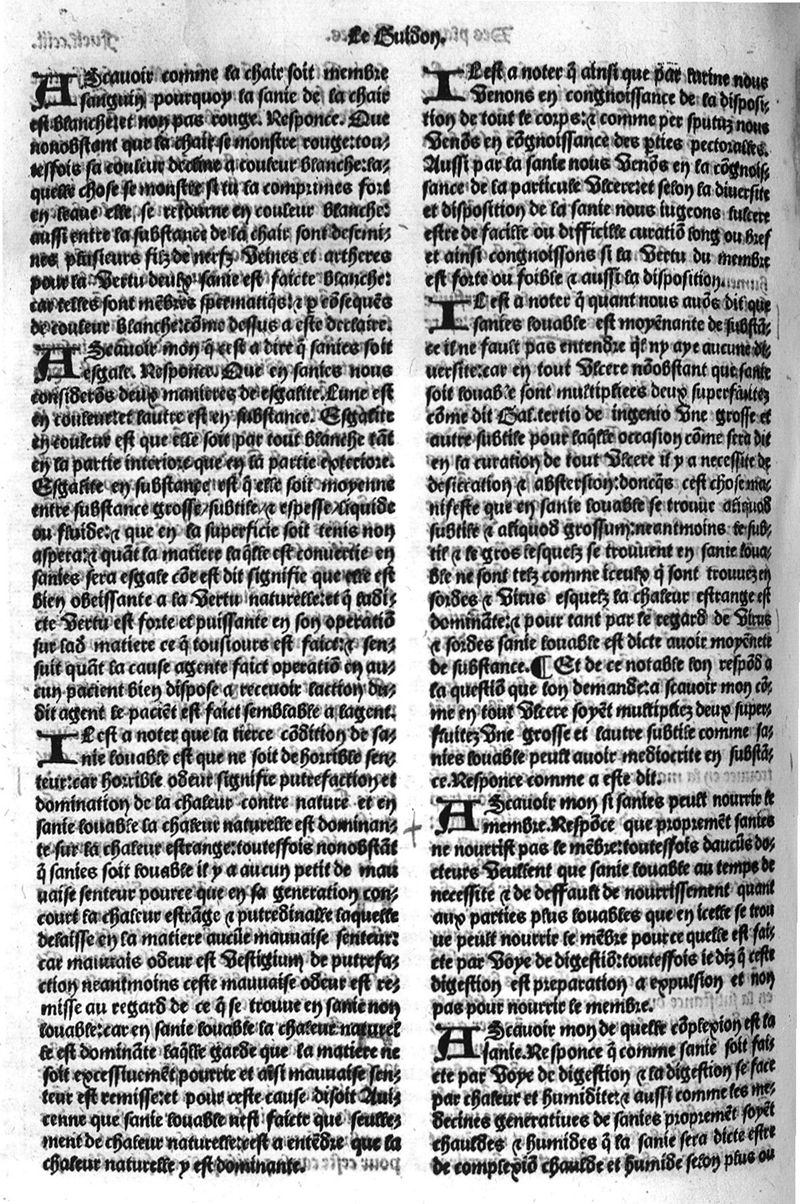 Le Guidon.
AScauoir comme la chair soit membre
sanguin pourquoy la sanie de la chair
est blanche: et non pas rouge. Responce. Que
nonobstant que la chair se monstre rouge: tou⸗
tesfois sa couleur decline a couleur blanche: la⸗
quelle chose se monstre si tu la comprimes fort
en leaue elle se retourne en couleur blanche:
aussi entre la substance de la chair sont desemi⸗
nes plusieurs filz de nerfz veines et artheres
pour la vertu deulx sanie est faicte blanche:
car telles sont mēbres spermatiq̄s: ⁊ p cōsequēs
de couleur blanche: cōme dessus a este declaire.
AScauoir mon q̄ cest a dire q̄ sanies soit
esgale. Responce. Que en sanies nous
considerōs deux manieres de esgalite. Lune est
en couleur: et lautre est en substance. Esgalite
en couleur est que elle soit par tout blanche tāt
en la partie interiore que en la partie exteriore.
Esgalite en substance est q̄ elle soit moyenne
entre substance grosse/subtile/⁊ espesse/liquide
ou fluide: ⁊ que en la superficie soit lenis non
aspera: ⁊ quāt la matiere laq̄lle est conuertie en
sanies sera esgale cōe est dit signifie que elle est
bien obeissante a la vertu naturelle: et q̄ ladi⸗
cte vertu est forte et puissante en son operatiō
sur lad matiere ce q̄ tousiours est faict: ⁊ sen⸗
suit quāt la cause agente faict operatiō en au⸗
cun pacient bien dispose a recevoir laction du⸗
dit agent le paciēt est faict semblable a lagent.
IL est a noter que la tierce cōdition de sa⸗
nie louable est que ne soit de horrible sen⸗
teur: car horrible odeur signifie putrefaction et
domination de la chaleur contre nature et en
sanie louable la chaleur naturelle est dominan⸗
te sur la chaleur estrange: toutesfois nonobstāt
q̄ sanies soit louable il y a aucun petit de mau
uaise senteur pource que en sa generation con⸗
court la chaleur estrāge ⁊ putredinalle laquelle
delaisse en la matiere aucūe mauuaise senteur:
car mauuais odeur est vestigium de putrefa⸗
ction neantmoins ceste mauuaise odeur est re⸗
misse au regard de ce q̄ se trouue en sanie non
louable: car en sanie louable la chaleur naturel
le est domināte laq̄lle garde que la matiere ne
soit excessiuemēt pourrie et aīsi mauuaise sen⸗
teur est remisse: et pour ceste cause disoit Aui⸗
cenne que sanie louable nest faicte que seulle⸗
ment de chaleur naturelle: cest a entēdre que la
chaleur naturelle y est dominante.
IL est a noter q̄ ainsi que par lurine nous
Venons en congnoissance de la disposi⸗
tion de tout le corps: ⁊ comme per sputaz nous
Venōs en cōgnoissance des pties pectoralles.
Aussi par la sanie nous Venōs en la cōgnois⸗
sance de la particule vlceree: et selon la diuersite
et disposition de la sanie nous iugeons lulcere
estre de facille ou difficille curatiō long ou bref
et ainsi congnoissons si la vertu du membre
est forte ou foible ⁊ aussi la disposition.
IL est a noter q̄ quant nous auōs dit que
sanies louable est moyēnante de substā⸗
ce il ne fault pas entendre q̄l ny aye aucune di⸗
uersite: car en tout vlcere nōobstant que sanie
soit louable sont multipliers deux superfluitez
cōme dit Gal. tertio de ingenio vne grosse et
autre subtile pour laq̄lle occasion cōme sera dit
en la curation de tout vlcere il y a necessite de
desiccation ⁊ abstersion: doncq̄s cest chose ma⸗
nifeste que en sanie louable se trouue aliquod
subtile ⁊ aliquod grossum: neantmoins le sub⸗
til ⁊ le gros lesquelz se trouuent en sanie loua⸗
ble ne sont telz comme iceulx q̄ sont trouuez en
sordes ⁊ virus esquelz la chaleur estrange est
domināte: ⁊ pour tant par le regard de virus
⁊ sordes sanie louable est dicte auoir moyēnete
de substance. ¶ Et de ce notable lon respōd a
la questiō que lon demande: a scauoir mon cō⸗
me en tout vlcere soyēt multipliez deux super⸗
fluitez vne grosse et lautre subtile comme sa⸗
nies louable peult auoir mediocrite en substā⸗
ce. Responce comme a este dit.
AScauoir mon si sanies peult nourrir le
membre. Respōce que propremēt sanies
ne nourrist pas le mēbre: toutesfois daucūs do⸗
cteurs veullent que sanie louable au temps de
necessite ⁊ de deffault de nourrissement quant
aux parties plus louables que en icelle se trou
ue peult nourrir le mēbre pource quelle est fai⸗
cte par voye de digestiō: toutesfois ie diz q̄ ceste
digestion est preparation a expulsion et non
pas pour nourrir le membre.
AScauoir mon de quelle cōplexion est la
sanie. Responce q̄ comme sanie soit fai⸗
cte par voye de digestion ⁊ la digestion se face
par chaleur et humidite: ⁊ aussi comme les me⸗
decines generatiues de sanies propremēt soyēt
chauldes ⁊ humides q̄ la sanie sera dicte estre
de complexiō chaulde et humide selon plus ou